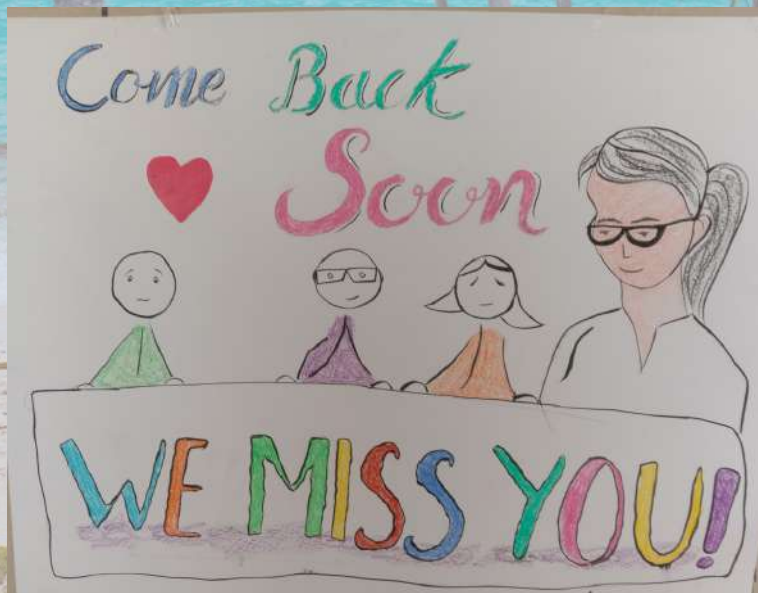 Come Back
Soon
WE MISS YOU!